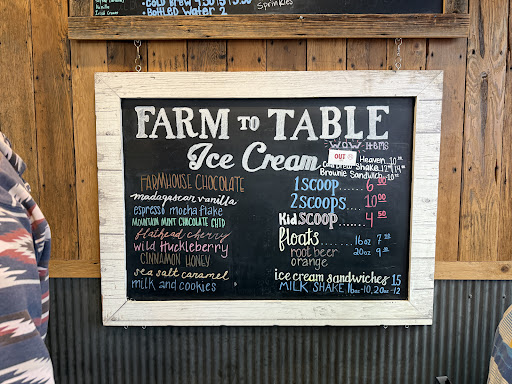 Vanilla
Irish Cream
COLD BREW
BOTTLED WATER 2
Sprinkles
FARM TO TABLE
Ice Cream
WOW ITEMS
OUT
Heaven 10
Shake 12
Brownie Sandwich
FARMHOUSE CHOCOLATE
madagascar vanilla
espresso mocha flake
MOUNTAIN MINT CHOCOLATE CHIP
flathead cherry
wild Huckleberry
CINNAMON HONEY
sea salt caramel
milk and cookies
1 SCOOP...... 6 50
2 SCOOPS...... 10 00
Kid SCOOP...... 4 50
floats..... 16oz 7
root beer 20oz 9
orange
ice cream sandwiches 15
MILK SHAKE 16oz-10, 20oz-12